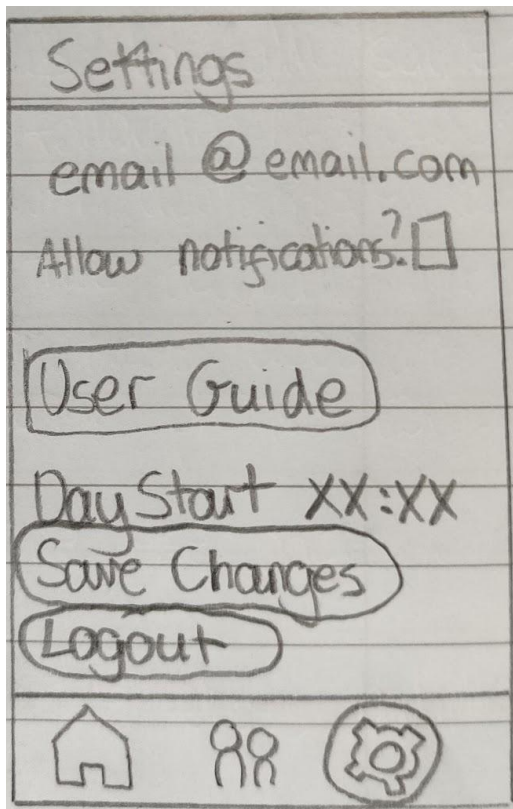 Settings
email @ email.com
Allow notifications?
User Guide
Day Start XX:XX
Save Changes
Logout